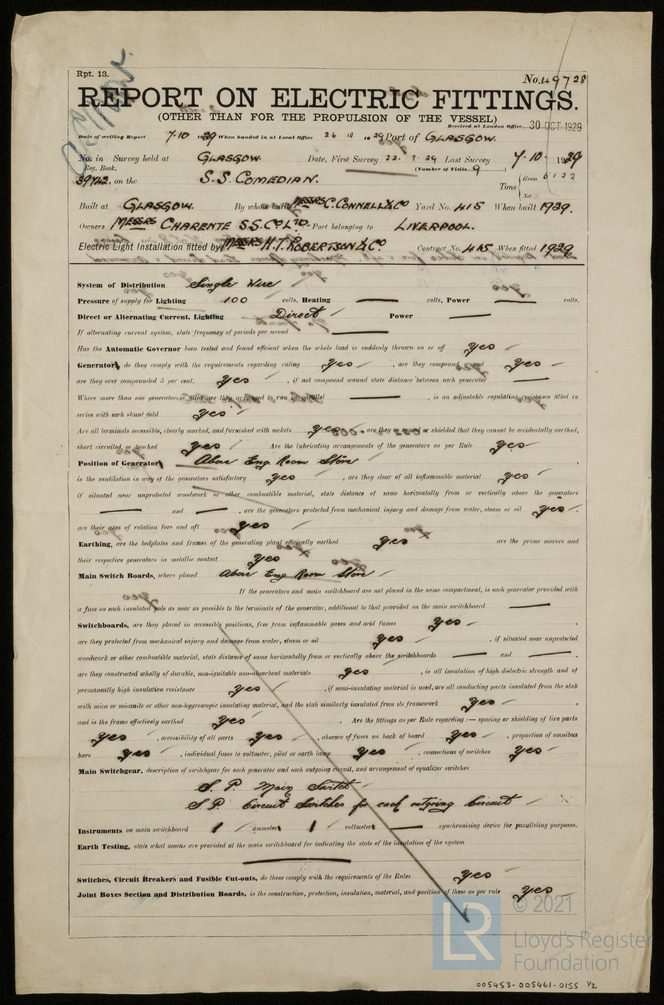 Rpt. 13.
No. 49728
REPORT ON ELECTRIC FITTINGS.
(OTHER THAN FOR THE PROPULSION OF THE VESSEL)
Received at London Office 30 OCT 1929
Date of writing Report 7.10 1929 When handed in at Local Office 26 10 1929 Port of GLASGOW.
No. in Survey held at GLASGOW. Date, First Survey 22. 7 29 Last Survey 7.10. 1929
Reg. Book. (Number of Visits 9)
39742. on the S.S. COMEDIAN. Tons Gross 5122
Net
Built at GLASGOW. By whom built MESSRS C. CONNELL & CO Yard No. 415 When built 1929.
Owners MESSRS CHARENTE S.S. CO LTD. Port belonging to LIVERPOOL.
Electric Light Installation fitted by MESSRS H.T. ROBERTSON & CO Contract No. 415 When fitted 1929
System of Distribution Single Wire
Pressure of supply for Lighting 100 volts, Heating — volts, Power — volts.
Direct or Alternating Current, Lighting Direct Power —
If alternating current system, state frequency of periods per second —
Has the Automatic Governor been tested and found efficient when the whole load is suddenly thrown on or off yes
Generators, do they comply with the requirements regarding rating yes, are they compound wound yes
are they over compounded 5 per cent. yes, if not compound wound state distance between each generator —
Where more than one generator is fitted are they arranged to run in parallel —, is an adjustable regulating resistance fitted in
series with each shunt field yes
Are all terminals accessible, clearly marked, and furnished with sockets yes, are they so or shielded that they cannot be accidentally earthed,
short circuited, or touched yes Are the lubricating arrangements of the generators as per Rule yes
Position of Generators Above Eng Room Store
is the ventilation in way of the generators satisfactory yes, are they clear of all inflammable material yes
if situated near unprotected woodwork or other combustible material, state distance of same horizontally from or vertically above the generators
— and —, are the generators protected from mechanical injury and damage from water, steam or oil yes
are their axes of rotation fore and aft yes
Earthing, are the bedplates and frames of the generating plant efficiently earthed yes are the prime movers and
their respective generators in metallic contact yes
Main Switch Boards, where placed Above Eng Room Store
If the generators and main switchboard are not placed in the same compartment, is each generator provided with
a fuse on each insulated pole as near as possible to the terminals of the generator, additional to that provided on the main switchboard —
Switchboards, are they placed in accessible positions, free from inflammable gases and acid fumes yes
are they protected from mechanical injury and damage from water, steam or oil yes, if situated near unprotected
woodwork or other combustible material, state distance of same horizontally from or vertically above the switchboards — and —
are they constructed wholly of durable, non-ignitable non-absorbent materials yes, is all insulation of high dielectric strength and of
permanently high insulation resistance yes, if semi-insulating material is used, are all conducting parts insulated from the slab
with mica or micanite or other non-hygroscopic insulating material, and the slab similarly insulated from its framework yes
and is the frame effectively earthed yes. Are the fittings as per Rule regarding:— spacing or shielding of live parts
yes, accessibility of all parts yes, absence of fuses on back of board yes, proportion of omnibus
bars yes, individual fuses to voltmeter, pilot or earth lamp yes, connections of switches yes
Main Switchgear, description of switchgear for each generator and each outgoing circuit, and arrangement of equalizer switches
S. P. Main Switch
S P. Circuit Switches for each outgoing Circuit
Instruments on main switchboard 1 ammeters 1 voltmeters — synchronising device for paralleling purposes.
Earth Testing, state what means are provided at the main switchboard for indicating the state of the insulation of the system
—
Switches, Circuit Breakers and Fusible Cut-outs, do these comply with the requirements of the Rules yes
Joint Boxes Section and Distribution Boards, is the construction, protection, insulation, material, and position of these as per rule yes
© 2021
LR
Lloyd's Register
Foundation
005453-005461-0155 1/2